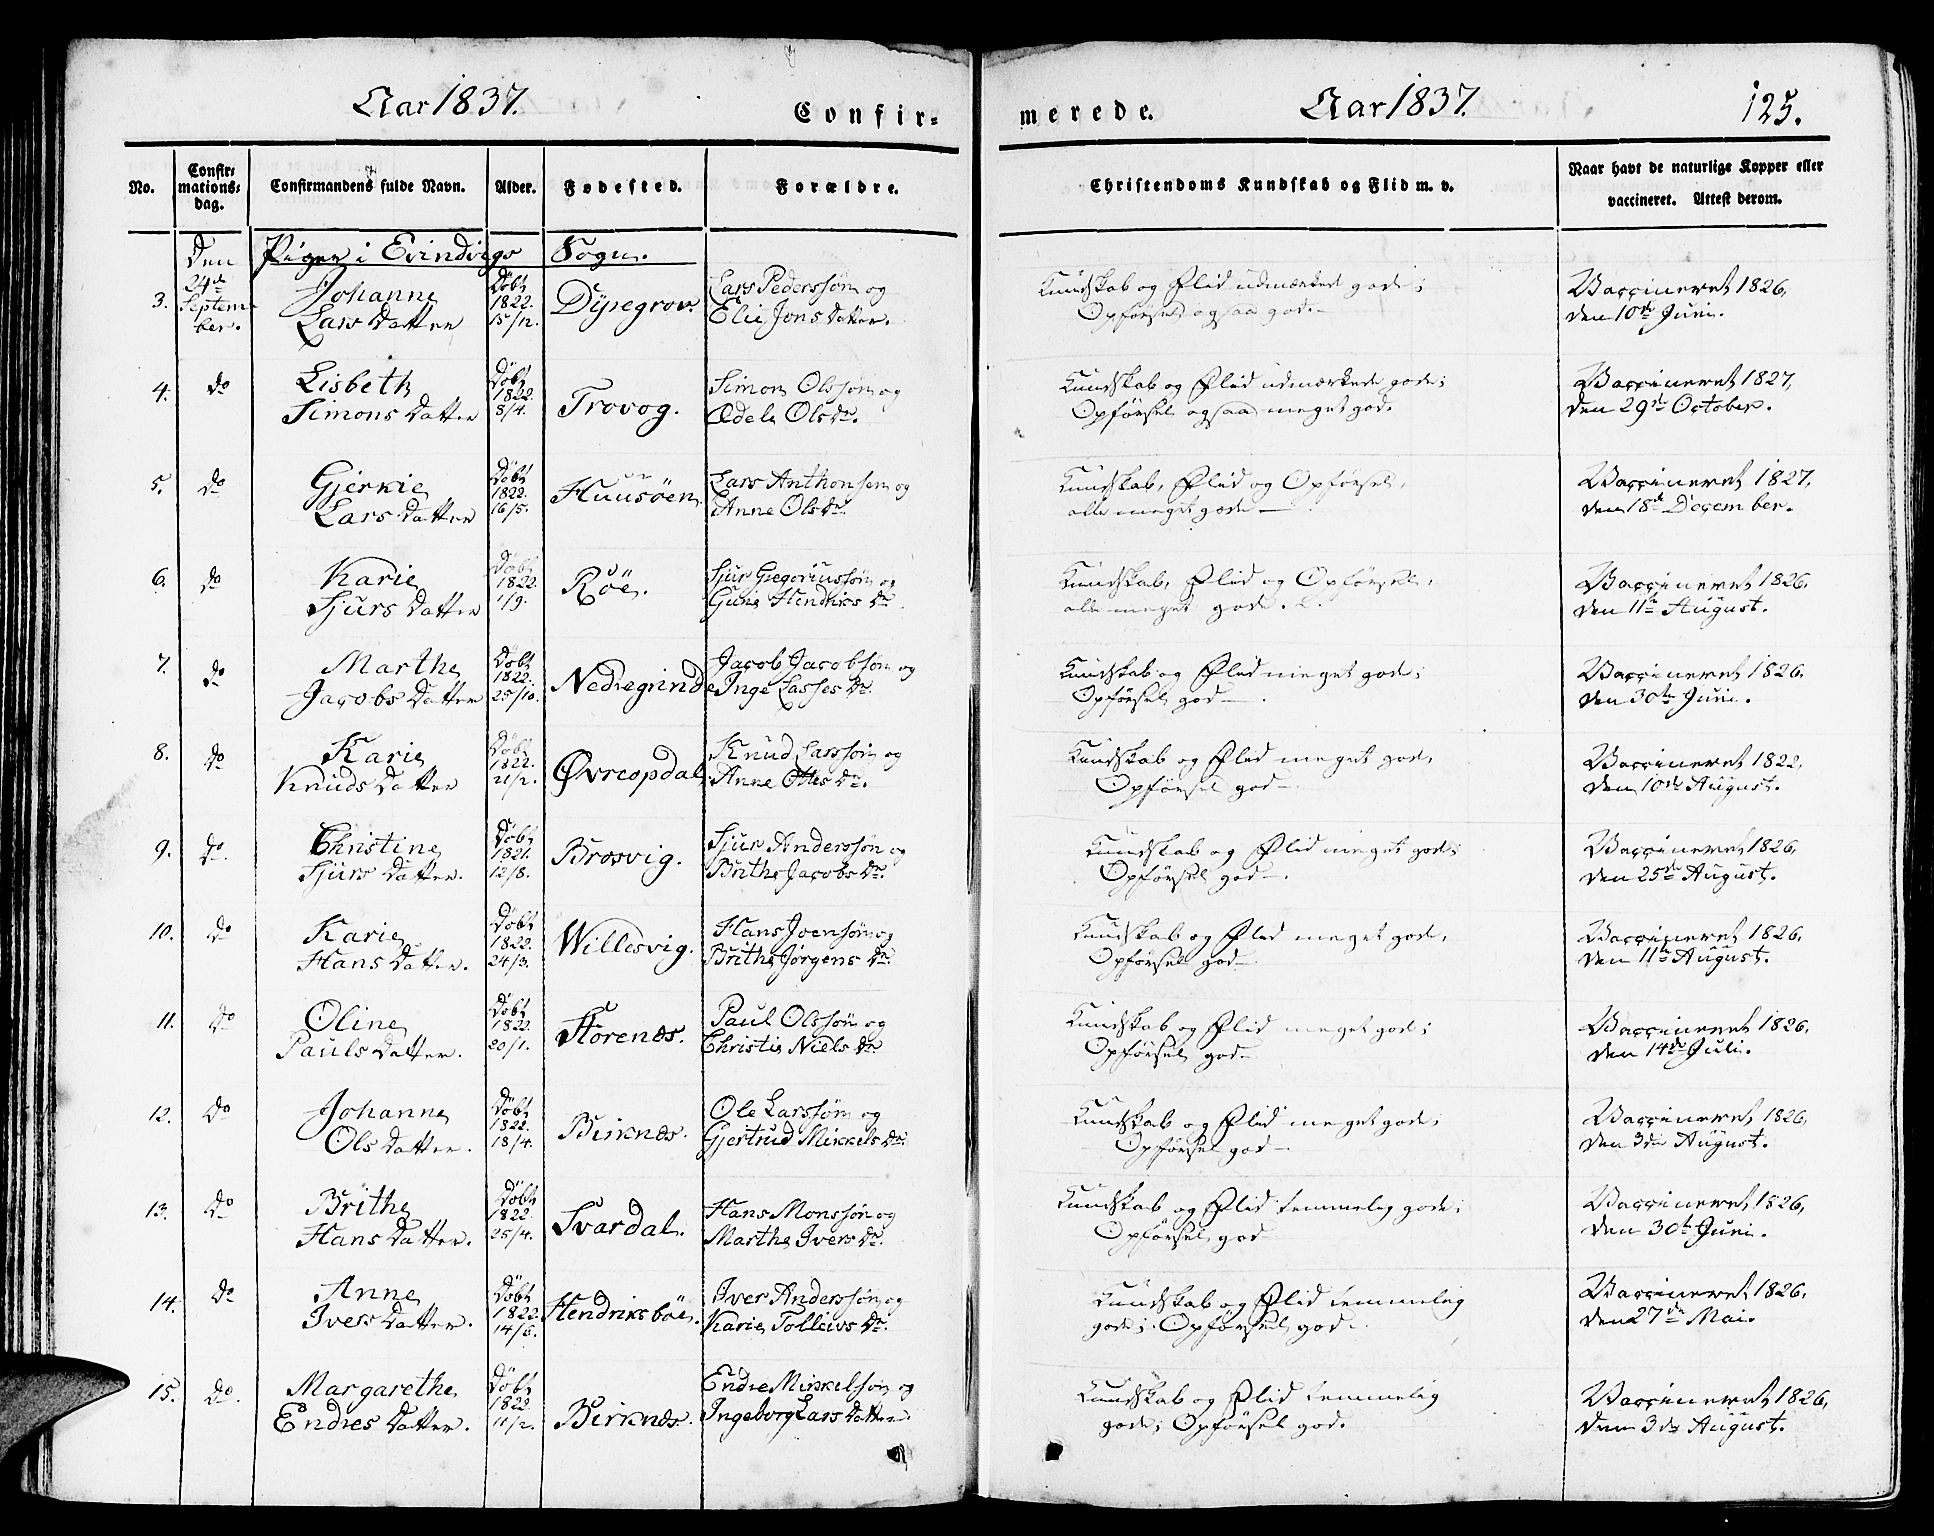 Aar 1837.
Confir=
merede.
Aar 1837.
125.
No.
Confir=
mations=
dag.
Confirmandens fulde Navn.
Alder.
Fødested.
Forældre.
Christendoms Kundskab og Flid m. v.
Naar havt de naturlige Kopper eller
vaccineret. Attest derom.
Piger i Evindvigs Sogn.
3. Den 24de Septem=
ber.
Johanne
Lars Datter
Døbt
1822.
15/12.
Dysegrov.
Lars Pederssøn og
Elie Jons Datter.
Kundskab og Flid udmærkede gode;
Opførsel ogsaa god.
Vaccineret 1826,
den 10de Juni.
4. Do
Lisbeth
Simons Datter
Døbt
1822.
8/4.
Trovog.
Simon Olssøn og
Ædele Ols Dr.
Kundskab og Flid udmærkede gode;
Opførsel ogsaa meget god.
Vaccineret 1827,
den 29de October.
5. Do
Gjerkie
Lars Datter
Døbt
1822.
16/5.
Huusøen.
Lars Anthonsen og
Anne Ols Dr.
Kundskab, Flid og Opførsel,
alle meget gode.
Vaccineret 1827,
den 18de December.
6. Do
Karie
Sjurs Datter
Døbt
1822.
1/9.
Røe.
Sjur Gregoriussøn og
Guris Hendriks Dr.
Kundskab, Flid og Opførsel,
alle meget gode.
Vaccineret 1826,
den 11te August.
7. Do
Marthe
Jacobs Datter
Døbt
1822.
25/10.
Nedregrinde
Jacob Jacobsøn og
Inge Lasses Dr.
Kundskab og Flid meget gode;
Opførsel god.
Vaccineret 1826,
den 30te Juni.
8. Do
Karie
Knuds Datter
Døbt
1822.
21/2.
Øvreopdal
Knud Larssøn og
Anne Ottes Dr.
Kundskab og Flid meget gode,
Opførsel god.
Vaccineret 1822,
den 10de August.
9. Do.
Christine
Sjurs Datter.
Døbt
1821.
12/8.
Brosvig.
Sjur Anderssøn og
Brithe Jacobs Dr.
Kundskab og Flid meget gode;
Opførsel god.
Vaccineret 1826,
den 25de August.
10. Do
Karie
Hans Datter.
Døbt
1822.
24/3.
Willesvig.
Hans Joensøn og
Brithe Jørgens Dr.
Kundskab og Flid meget gode,
Opførsel god.
Vaccineret 1826,
den 11te August.
11. Do
Oline
Pauls Datter.
Døbt
1822.
20/1.
Storenæs.
Paul Olssøn og
Christie Niels Dr.
Kundskab og Flid meget gode;
Opførsel god.
Vaccineret 1826,
den 14de Juli.
12. Do
Johanne
Ols Datter.
Døbt
1822.
18/4.
Birknæs.
Ole Larssøn og
Gjertrud Mikkels Dr.
Kundskab og Flid meget gode;
Opførsel god.
Vaccineret 1826,
den 3die August.
13. Do
Brithe
Hans Datter.
Døbt
1822.
25/4.
Svardal.
Hans Monssøn og
Marthe Ivers Dr.
Kundskab og Flid temmelig gode;
Opførsel god
Vaccineret 1826,
den 30te Juni.
14. Do
Anne
Ivers Datter.
Døbt
1822.
14/6.
Hendriksbøe.
Iver Anderssøn og
Karie Tolleivs Dr.
Kundskab og Flid temmelig
gode; Opførsel god.
Vaccineret 1826,
den 27de Mai.
15. Do.
Margarethe
Endres Datter.
Døbt
1822.
11/2.
Birknæs.
Endre Mikkelsøn og
Ingeborg Lars Datter.
Kundskab og Flid temmelig
gode; Opførsel god.
Vaccineret 1826,
den 3die August.